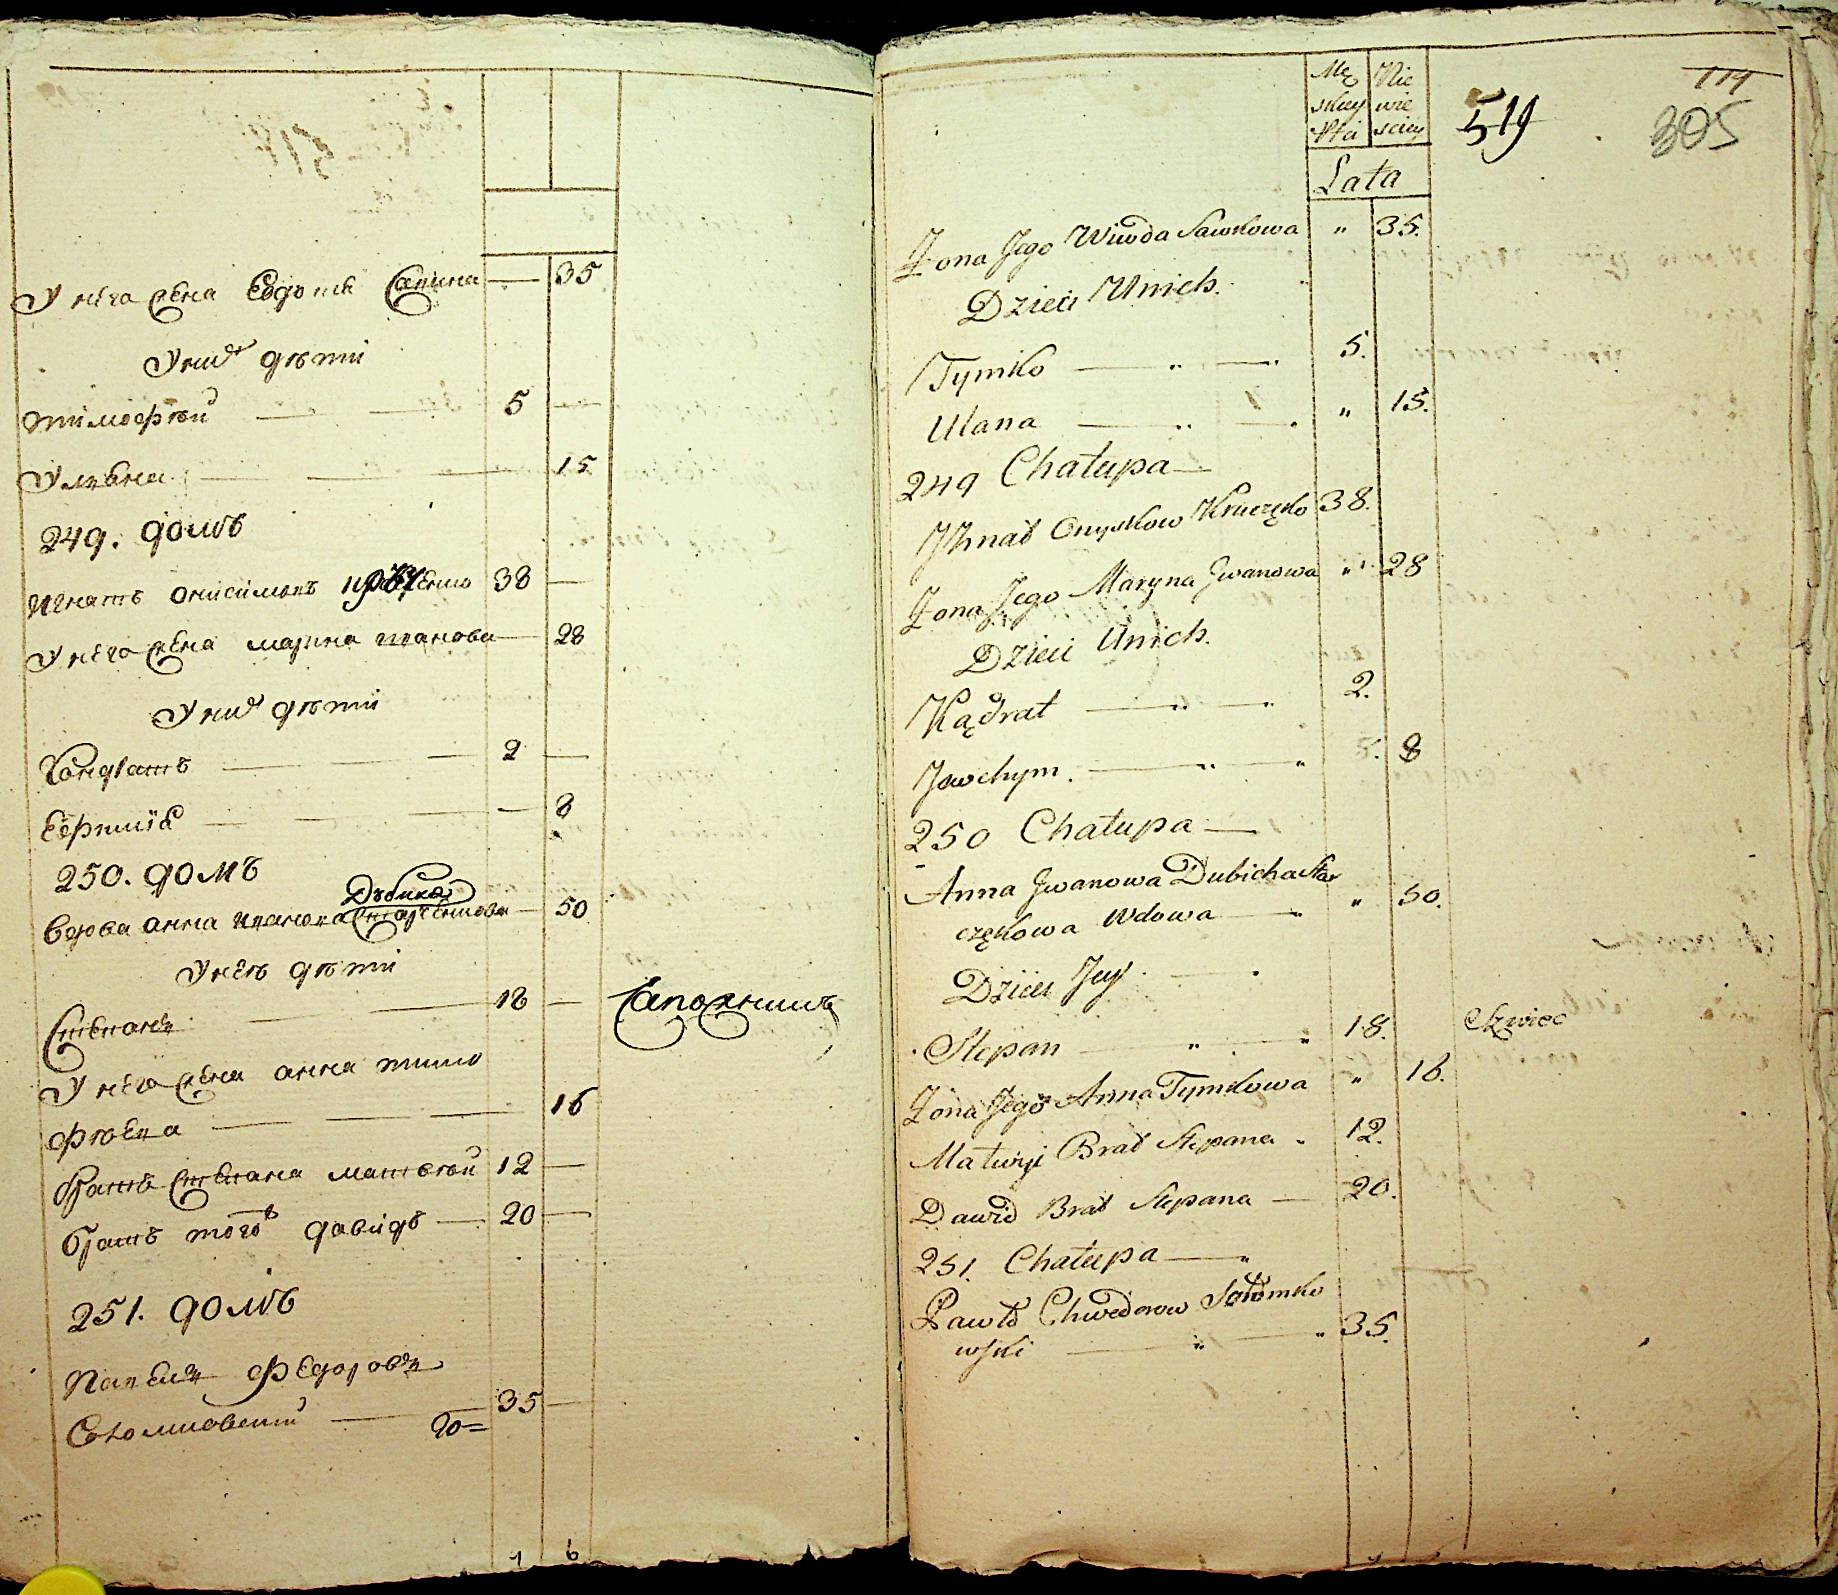 У него жена Евдокия Савина — 35
У них дети
Тимофей — — 5 —
Улвяна — — 15
249. домъ
Игнатъ Онисимовъ 38 —
У него жена Марина Иванова — 28
У них дети
Кондратъ — — 2 —
Ефимія — — 8
250. домъ
Вдова Анна Иванова — 50
У нея дети
Степанъ — — 18 — Сапожникъ
У него жена Анна Тимо
фѣева — — 16
Братъ Степана Матвей 12 —
Братъ того ж Давидъ — 20 —
251. домъ
Павелъ Федоровъ
Соломковский — 35 —
Mę Nie
skiey wie
Płci sciey
519
114
305
Lata
Żona Jego Wiwda Sawkowa " 35.
Dzieci Unich.
Tymko — " — 5.
Ulana — " — " 15.
249 Chałupa —
Yhnat Onyskow Kruczęko 38.
Żona Jego Maryna Jwanowa " 28
Dzieci Unich.
Kądrat — " — 2.
Jawchym. — " — 8
250 Chałupa —
Anna Jwanowa Dubicha Star
czękowa Wdowa — " 50.
Dzieci Jey —
Stepan — " — 18. Szwiec
Żona Jego Anna Tymkowa " 16.
Matwiy Brat Stepana " 12.
Dawid Brat Stepana — 20.
251. Chałupa — "
Pawło Chwedorow Sołomko
wski — " — " 35.